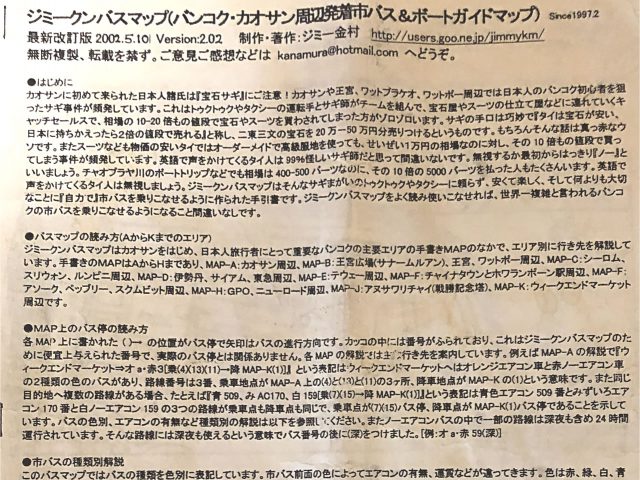 ジミークンバスマップ(バンコク・カオサン周辺発着市バス＆ボートガイドマップ) Since1997.2
最新改訂版 2002.5.10| Version:2.02 制作・著作:ジミー金村 http://users.goo.ne.jp/jimmykm/
無断複製、転載を禁ず。ご意見ご感想などは kanamura@hotmail.com へどうぞ。
●はじめに
カオサンに初めて来られた日本人諸氏は『宝石サギ』にご注意！カオサンや王宮、ワットプラケオ、ワットポー周辺では日本人のバンコク初心者を狙
ったサギ事件が頻発しています。これはトゥクトゥクやタクシーの運転手とサギ師がチームを組んで、宝石屋やスーツの仕立て屋などに連れていくキ
ャッチセールスで、相場の10-20倍もの値段で宝石やスーツを買わされてしまった方がゾロゾロいます。サギの手口は巧妙で『タイは宝石が安い、
日本に持ちかえったら2倍の値段で売れる』と称し、二束三文の宝石を20万－50万円分売りつけるというものです。もちろんそんな話は真っ赤なウ
ソです。またスーツなども物価の安いタイではオーダーメイドで高級服地を使っても、せいぜい1万円の相場なのに対し、その10倍もの値段で買っ
てしまう事件が頻発しています。英語で声をかけてくるタイ人は99%怪しいサギ師だと思って間違いないです。無視するか最初からはっきり『ノー』と
いいましょう。チャオプラヤ川のボートトリップなどでも相場は400-500バーツなのに、その10倍の5000バーツを払った人もたくさんいます。英語で
声をかけてくるタイ人は無視しましょう。ジミークンバスマップはそんなサギまがいのトゥクトゥクやタクシーに頼らず、安くて楽しく、そして何よりも大切
なことに『自力で』市バスを乗りこなせるように作られた手引書です。ジミークンバスマップをよく読み使いこなせれば、世界一複雑と言われるバンコ
クの市バスを乗りこなせるようになること間違いなしです。
●バスマップの読み方(AからKまでのエリア)
ジミークンバスマップはカオサンをはじめ、日本人旅行者にとって重要なバンコクの主要エリアの手書きMAPのなかで、エリア別に行き先を解説して
います。手書きのMAPはAからHまであり、MAP-A:カオサン周辺、MAP-B:王宮広場(サナームルアン)、王宮、ワットポー周辺、MAP-C:シーロム、
スリウォン、ルンピニ周辺、MAP-D:伊勢丹、サイアム、東急周辺、MAP-E:テウェー周辺、MAP-F:チャイナタウンとホワランポーン駅周辺、MAP-F:
アソーク、ペッブリー、スクムビット周辺、MAP-H:GPO、ニューロード周辺、MAP-J:アヌサワリチャイ(戦勝記念塔)、MAP-K:ウィークエンドマーケット
周辺です。
●MAP上のバス停の読み方
各MAP上に書かれた( )→ の位置がバス停で矢印はバスの進行方向です。カッコの中には番号がふられており、これはジミークンバスマップのた
めに便宜上与えられた番号で、実際のバス停とは関係ありません。各MAPの解説では主に行き先を案内しています。例えばMAP-Aの解説で『ウ
ィークエンドマーケット⇒オa・赤3[乗(4)(13)(11)→降MAP-K(1)]』という表記はウィークエンドマーケットへはオレンジエアコン車と赤ノーエアコン車
の2種類の色のバスがあり、路線番号は3番、乗車地点がMAP-A上の(4)と(13)と(11)の3ヶ所、降車地点がMAP-Kの(1)という意味です。また同じ
目的地へ複数の路線がある場合、たとえば『青509、みAC170、白159[乗(7)(15)→降MAP-K(1)]』という表記は青色エアコン509番とみずいろエア
コン170番と白ノーエアコン159の3つの路線が乗車点も降車点も同じで、乗車点が(7)(15)バス停、降車点がMAP-K(1)バス停であることを示して
います。バスの色別、エアコンの有無など種類別の解説は以下を参照ください。またノーエアコンバスの中で一部の路線は深夜も含め24時間
運行されています。そんな路線には深夜も使えるという意味でバス番号の後に(深)をつけました。[例:オa・赤59(深)]
●市バスの種類別解説
このバスマップではバスの種類を色別に表記しています。市バス前面の色によってエアコンの有無、運賃などが違ってきます。色は赤、緑、白、青